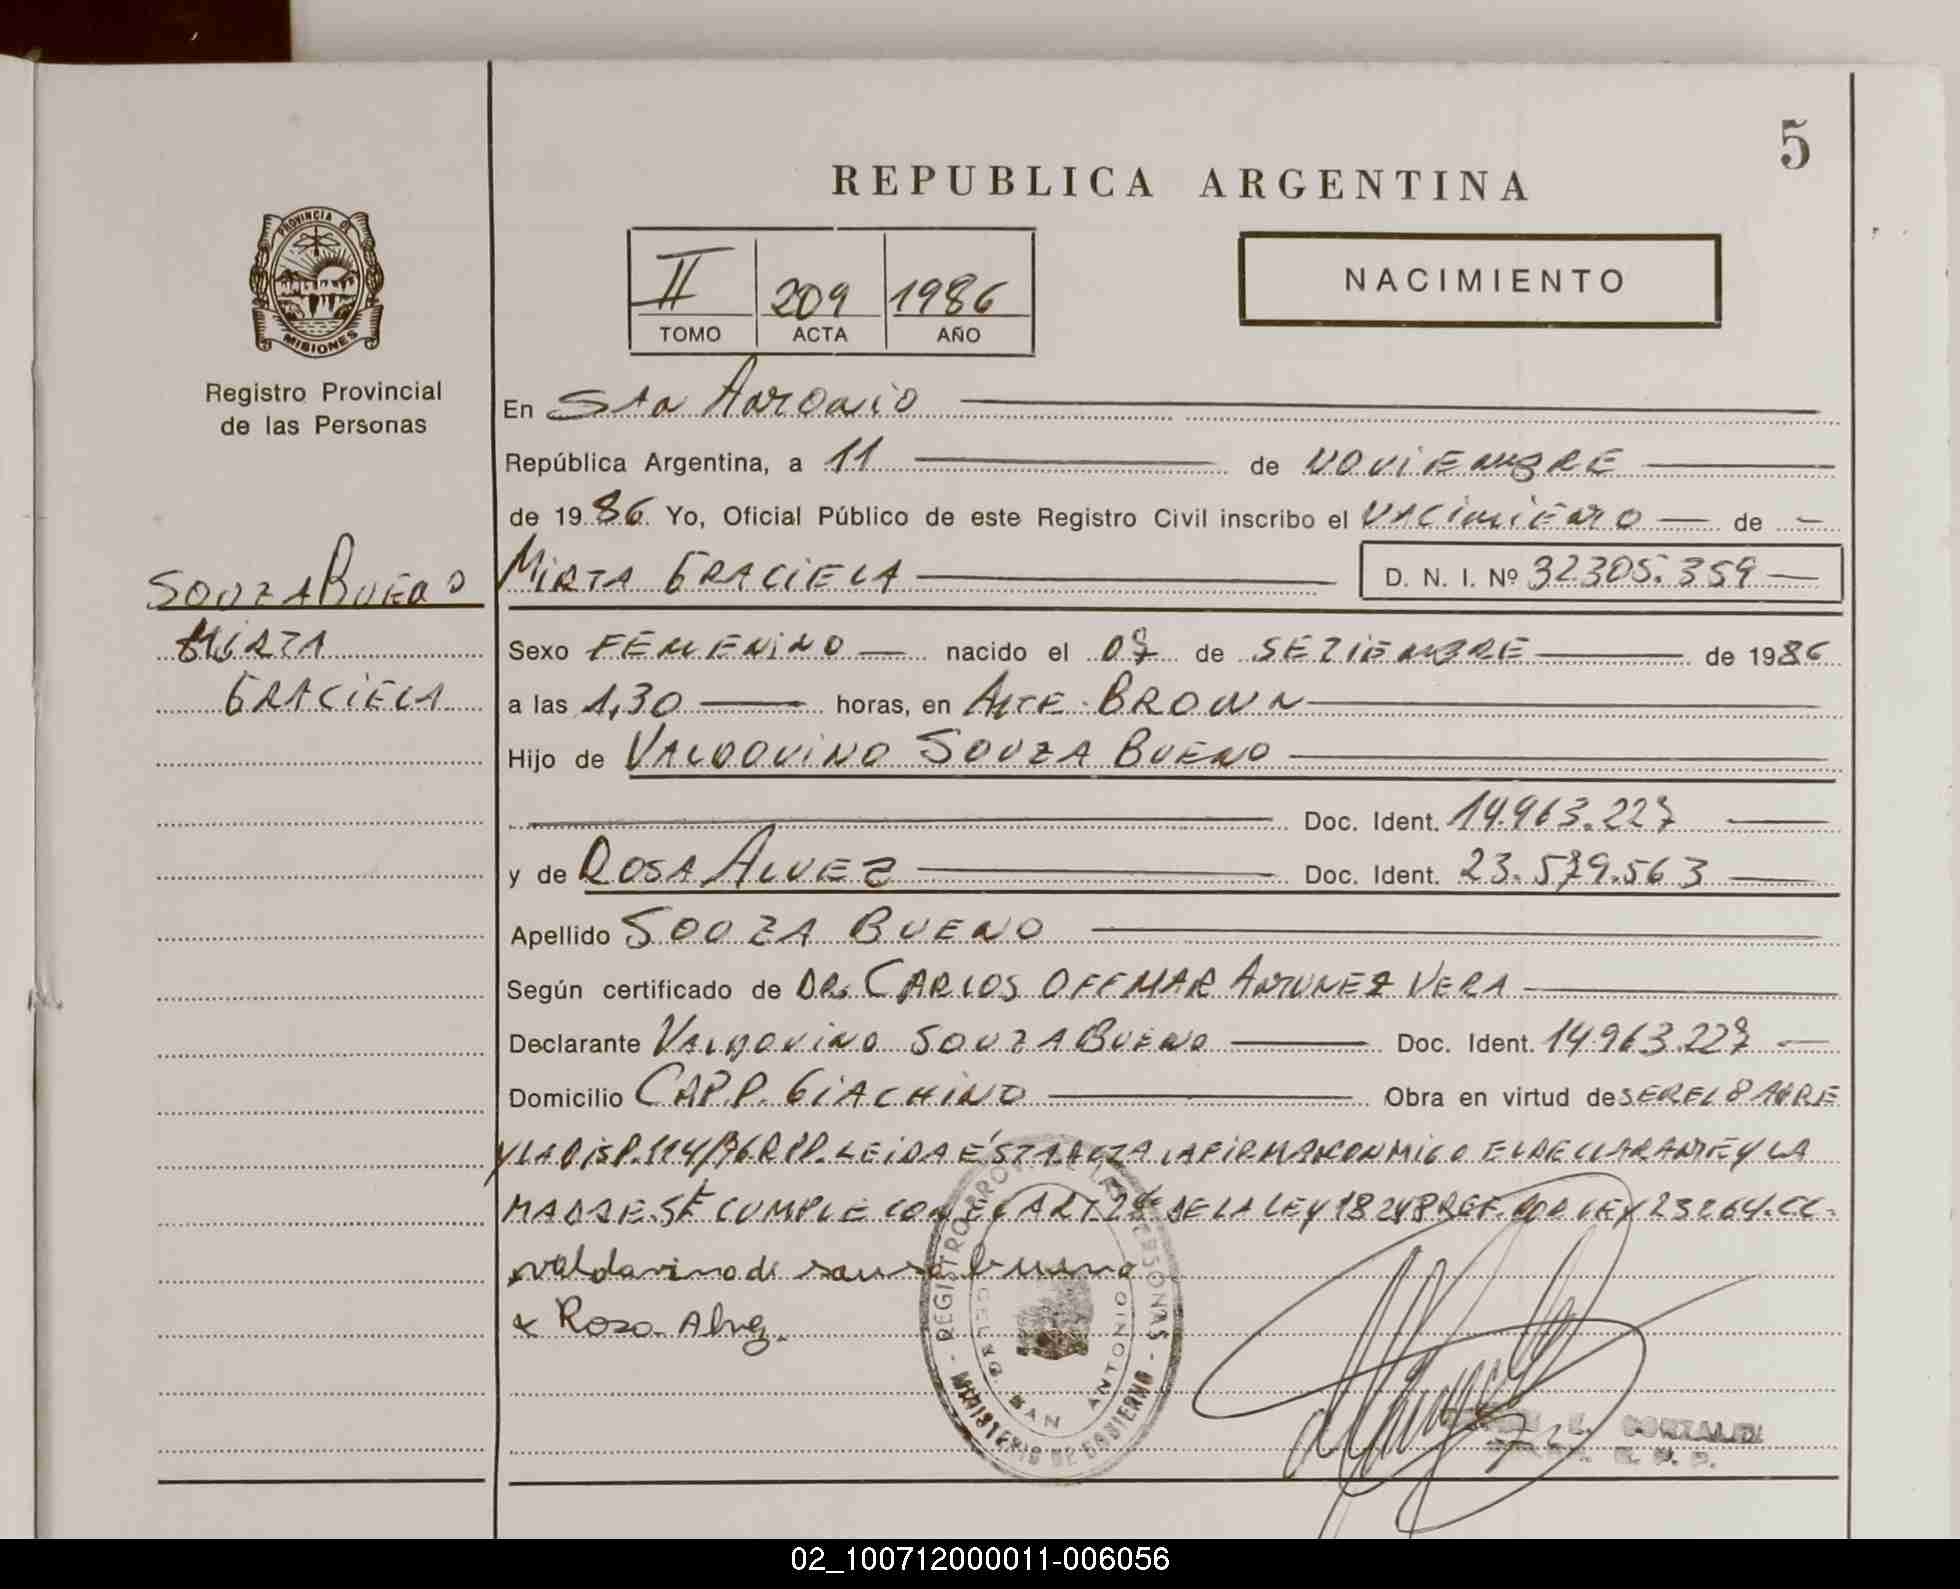 5
REPUBLICA ARGENTINA
PROVINCIA DE
MISIONES
Registro Provincial
de las Personas
II 209 1986
TOMO ACTA AÑO
NACIMIENTO
En San Antonio
República Argentina, a 11 de NOVIEMBRE
de 1986 Yo, Oficial Público de este Registro Civil inscribo el NACIMIENTO de
SOUZA BUENO
MIRTA
GRACIELA
MIRTA GRACIELA D. N. I. Nº 32305.359
Sexo FEMENINO nacido el 07 de SETIEMBRE de 1986
a las 1,30 horas, en ALTE BROWN
Hijo de VALDOVINO SOUZA BUENO
Doc. Ident. 14.963.227
y de ROSA ALVEZ Doc. Ident. 23.579.563
Apellido SOUZA BUENO
Según certificado de DR. CARLOS OFFMAR ANTUNEZ VERA
Declarante VALDOVINO SOUZA BUENO Doc. Ident. 14.963.227
Domicilio CAP. P. GIACHINO Obra en virtud de SER EL PADRE
Y LA DISP. 114/76 R.P.P. LEIDA ÉSTA ACTA, LA FIRMAN CONMIGO EL DECLARANTE Y LA
MADRE. SE CUMPLE CON EL ART 2º DE LA LEY 18248 REF. POR LEY 23264. CC.
valdovino de souza bueno
x Rosa Alvez.
REGISTRO PROV. DE LAS PERSONAS
DELEG. SAN ANTONIO
MINISTERIO DE GOBIERNO
E. GONZALEZ
R. P. P.
02_100712000011-006056